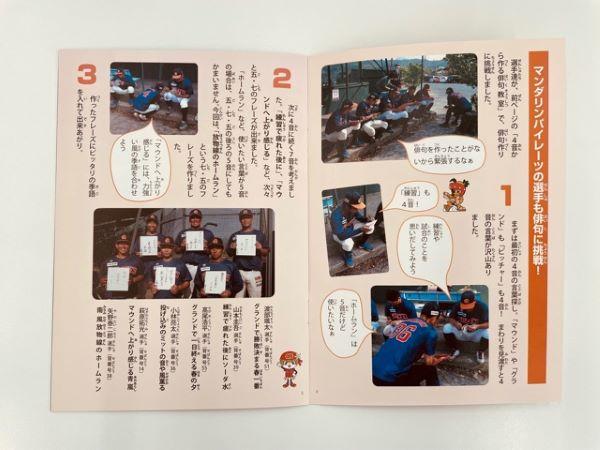 マンダリンパイレーツの選手も俳句に挑戦！
選手達が、前ページの「4音か
ら作る俳句教室」で、俳句作り
に挑戦しました。
俳句を作ったことがな
いから緊張するなぁ
1
まずは最初の4音の言葉探し。「マウンド」や「グラ
ンド」も「ピッチャー」も4音！ まわりを見渡すと4
音の言葉が沢山あり
ました。
「練習」も
4音！
練習や
試合のことを
思いだしてみよう
「ホームラン」は
5音だけど
使いたいなぁ
2
次に4音に続く7音を考えまし
た。「練習で疲れた後に」、「マウ
ンドへ上がり感じる」など、次々
と五・七のフレーズが出来ました。
「ホームラン」など、使いたい言葉が5音
の場合は、五・七・五の後ろの5音にしても
かまいません。今回は、「放物線のホームラン」
という七・五のフ
レーズを作りまし
た。
3
作ったフレーズにピッタリの季語
を入れて出来あがり。
「マウンドへ上がり
感じる」には、力強
い風の季語を合わせ
よう
グランドで勝敗決まる春一番
山本圭吾選手
練習で疲れた後にソーダ水
高尾浩平選手
グランドで一日終える春の夕
小林亮太選手
投げ込みのミットの音や風薫る
萩原拓光選手
マウンドへ上がり感じる青嵐
南風放物線のホームラン